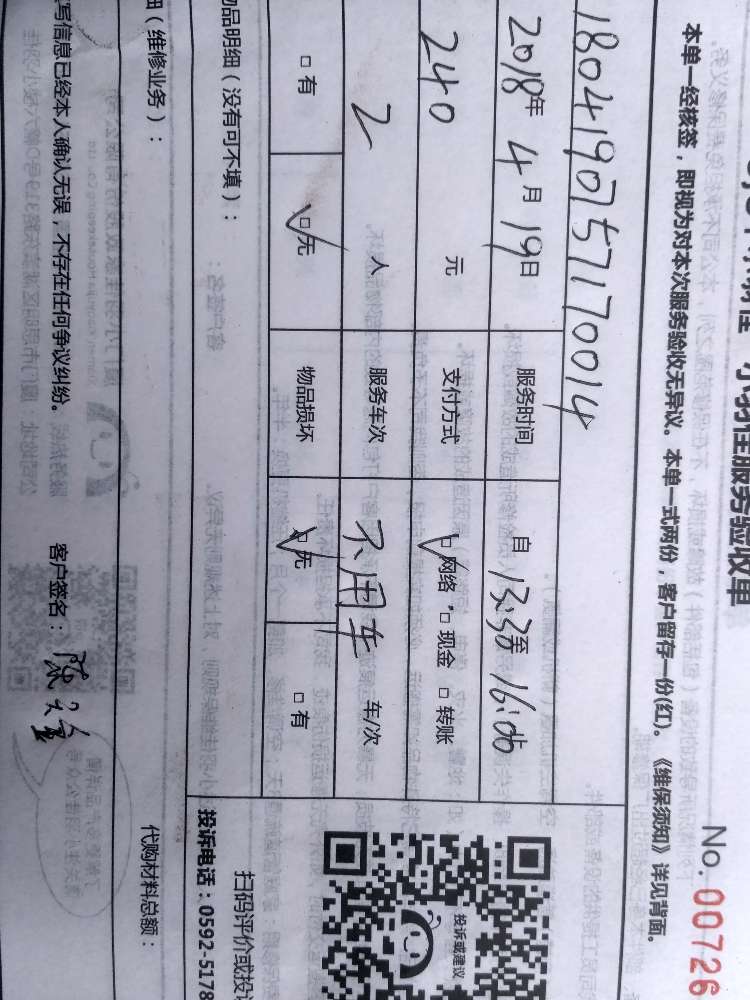 小羽佳服务验收单
No. 00726
本单一经核签，即视为对本次服务验收无异议。本单一式两份，客户留存一份(红)。《维保须知》详见背面。
1804190757170014
2018年 4月 19日 服务时间 自 13:30至 16:00
240 元 支付方式 □ 网络 □ 现金 □ 转账
2 人 服务车次 不用车 车/次
□ 有 □ 无 物品损坏 □ 无 □ 有
投诉或建议
扫码评价或投
投诉电话：0592-5178
品明细（没有可不填）：
（维修业务）：
代购材料总额：
写信息已经本人确认无误，不存在任何争议纠纷。 客户签名：